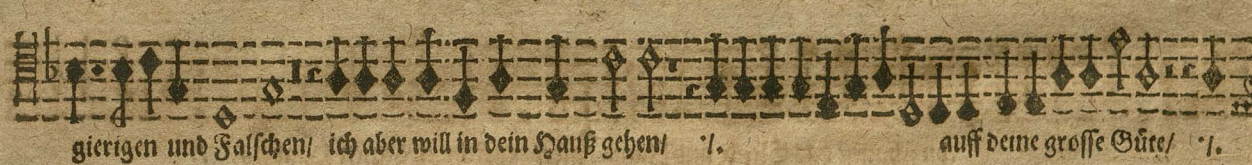 gierigen und Falschen/ ich aber will in dein Hauß gehen/ ·/. auff deine grosse Güte/ ·/.